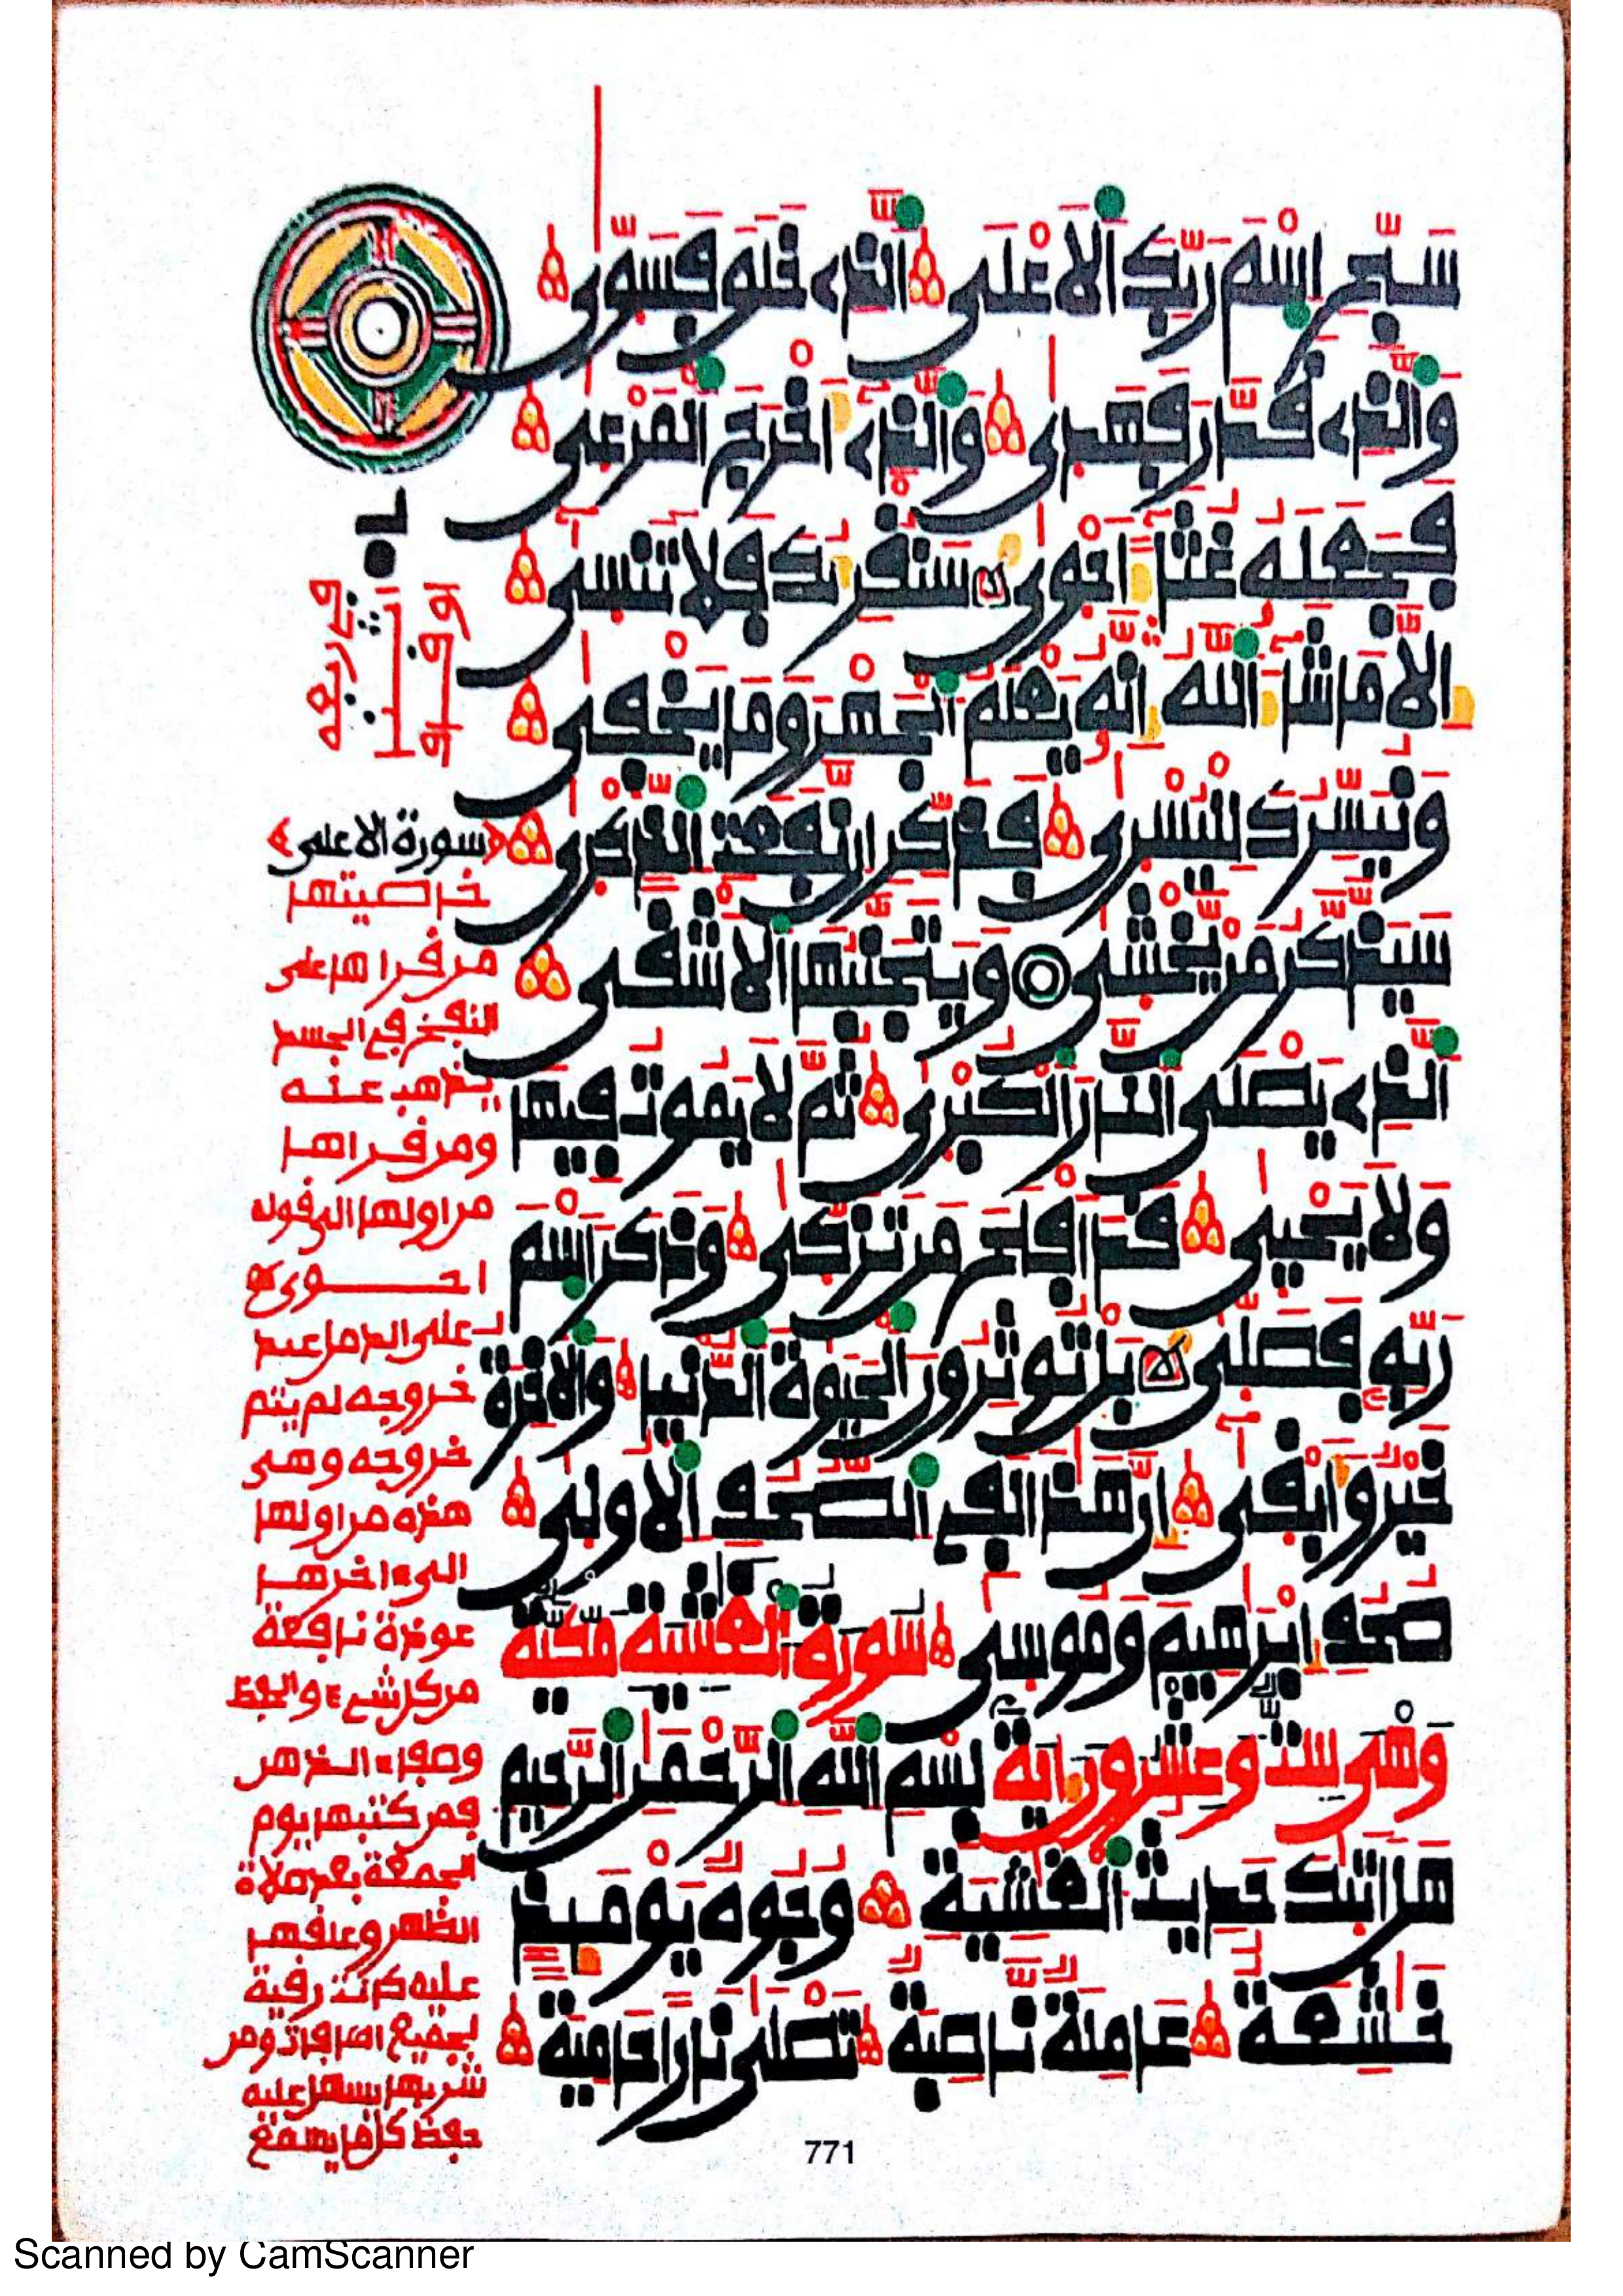 سَبِّحِ اِسْمَ رَبِّكَ اَلَاعْلَى اَلذِے خَلَقَ فَسَوّٜىٰ
وَالذِے قَدَّرَ فَهَدٜىٰ وَالذِےٓ أَخْرَجَ اَلْمَرْعٜىٰ
فَجَعَلَهُ غُثَآءً اَحْوٜىٰ سَنُقْرِئُكَ فَلَا تَنسٜىٰٓ
إِلَّا مَا شَآءَ اَللَّهُ إِنَّهُ يَعْلَمُ اُلْجَهْرَ وَمَا يَخْفٜىٰ
وَنُيَسِّرُكَ لِلْيُسْرٜىٰ فَذَكِّرِ اِن نَّفَعَتِ اِلذِّكْرٜىٰ
سَيَذَّكَّرُ مَنْ يَّخْشٜىٰ وَيَتَجَنَّبُهَا اَلَاشْقَى
اَلذِے يَصْلَى اَلنَّارَ اَلْكُبْرٜىٰ ثُمَّ لَا يَمُوتُ فِيهَا
وَلَا يَحْيٜىٰ قَدَ اَفْلَحَ مَن تَزَكّٜىٰ وَذَكَرَ اَسْمَ
رَبِّهِ فَصَلّٜىٰ بَلْ تُوثِرُونَ اَلْحَيَوٰةَ اَلدُّنْيٜا وَالَاخِرَةُ
خَيْرٌ وَأَبْقٜىٰٓ إِنَّ هَٰذَا لَفِے اِلصُّحُفِ اِلُاولٜىٰ
صُحُفِ إِبْرَٰهِيمَ وَمُوسٜىٰ سُورَةُ اَلْغَٰشِيَةِ مَكِّيَّةٌ
وَهْىَ سِتٌّ وَعِشْرُونَ ءَايَةً بِسْمِ اِللَّهِ اِلرَّحْمَٰنِ اِلرَّحِيمِ
هَلَ اَتٜىٰكَ حَدِيثُ اُلْغَٰشِيَةِ وُجُوهٌ يَوْمَئِذٍ
خَٰشِعَةٌ عَامِلَةٌ نَّاصِبَةٌ تَصْلٜىٰ نَارًا حَامِيَةً
سورة الاعلى
خاصيتها
من قراها على
النفخ في الجسد
يذهب عنه
ومن قراها
من اولها الى قوله
احوى
على الدمل عند
خروجه لم يتم
خروجه وهى
هذه من اولها
الى ءاخرها
عوذة نافعة
من كل شيء
فمن كتبها يوم
الجمعة بعد صلاة
الظهر وعلقها
عليه كانت رقية
لجميع الافات ومن
شربها يسهل عليه
حفظ كل ما يسمع
771
Scanned by CamScanner